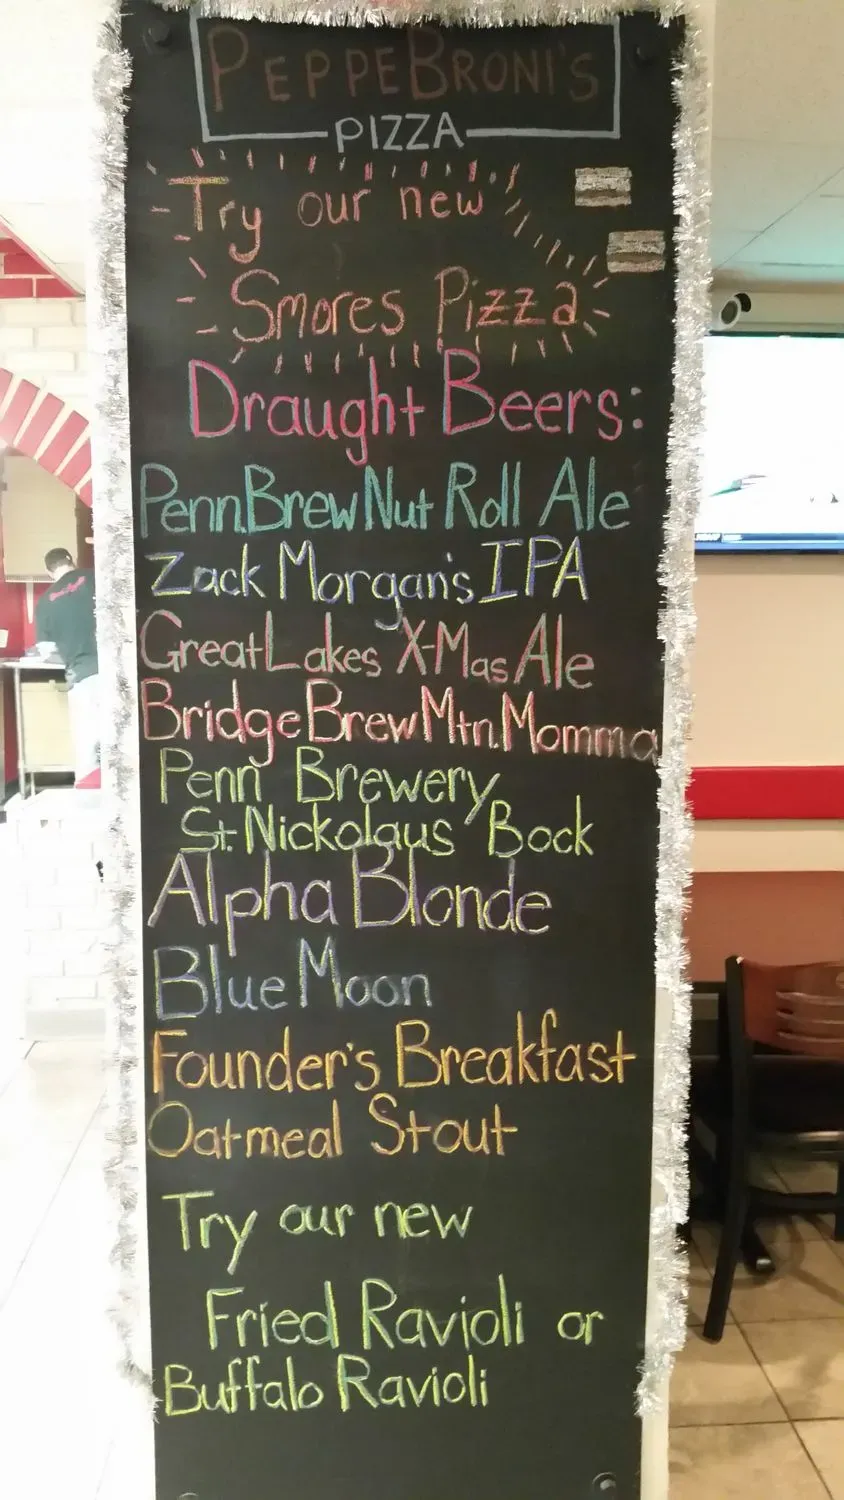 PEPPEBRONI'S
PIZZA
Try our new
Smores Pizza
Draught Beers:
Penn Brew Nut Roll Ale
Zack Morgan's IPA
Great Lakes X-Mas Ale
Bridge Brew Mtn. Momma
Penn Brewery
St. Nickolaus Bock
Alpha Blonde
Blue Moon
Founder's Breakfast
Oatmeal Stout
Try our new
Fried Ravioli or
Buffalo Ravioli